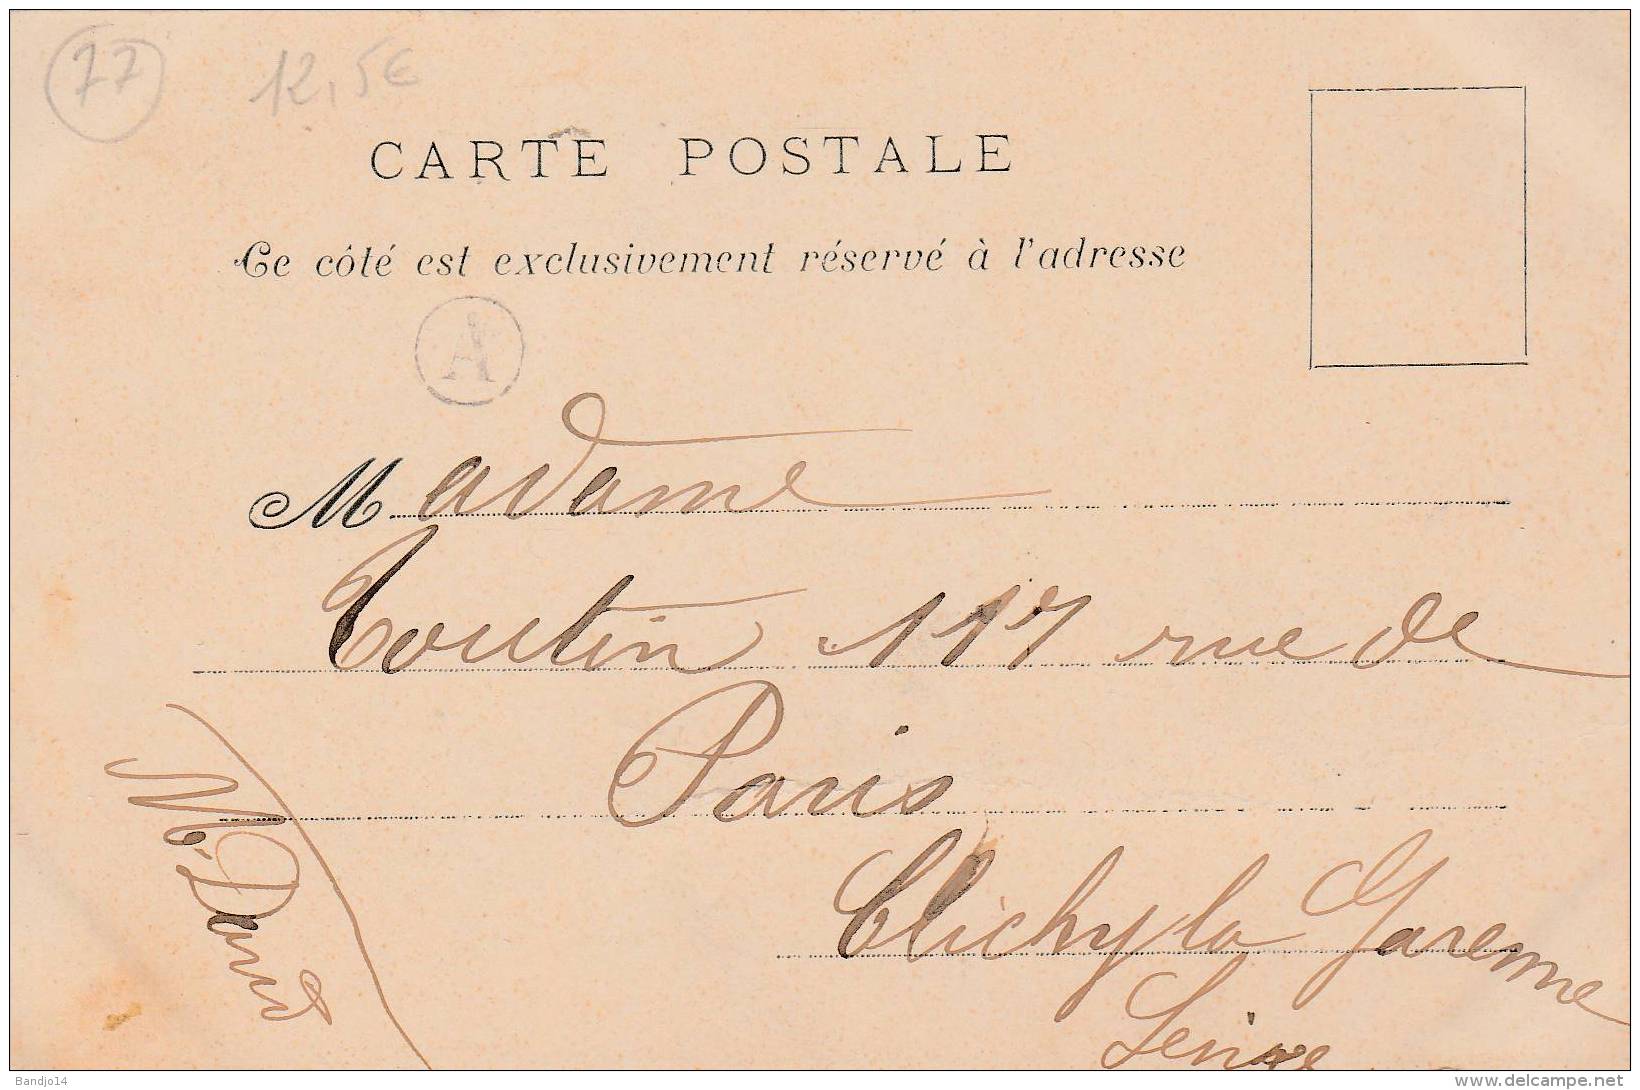 77
12,5€
CARTE POSTALE
Ce côté est exclusivement réservé à l'adresse
A
Madame
Toutin 117 rue de
Paris
Clichy la Garenne
Seine
M. David
Bandjo14
www.delcampe.net